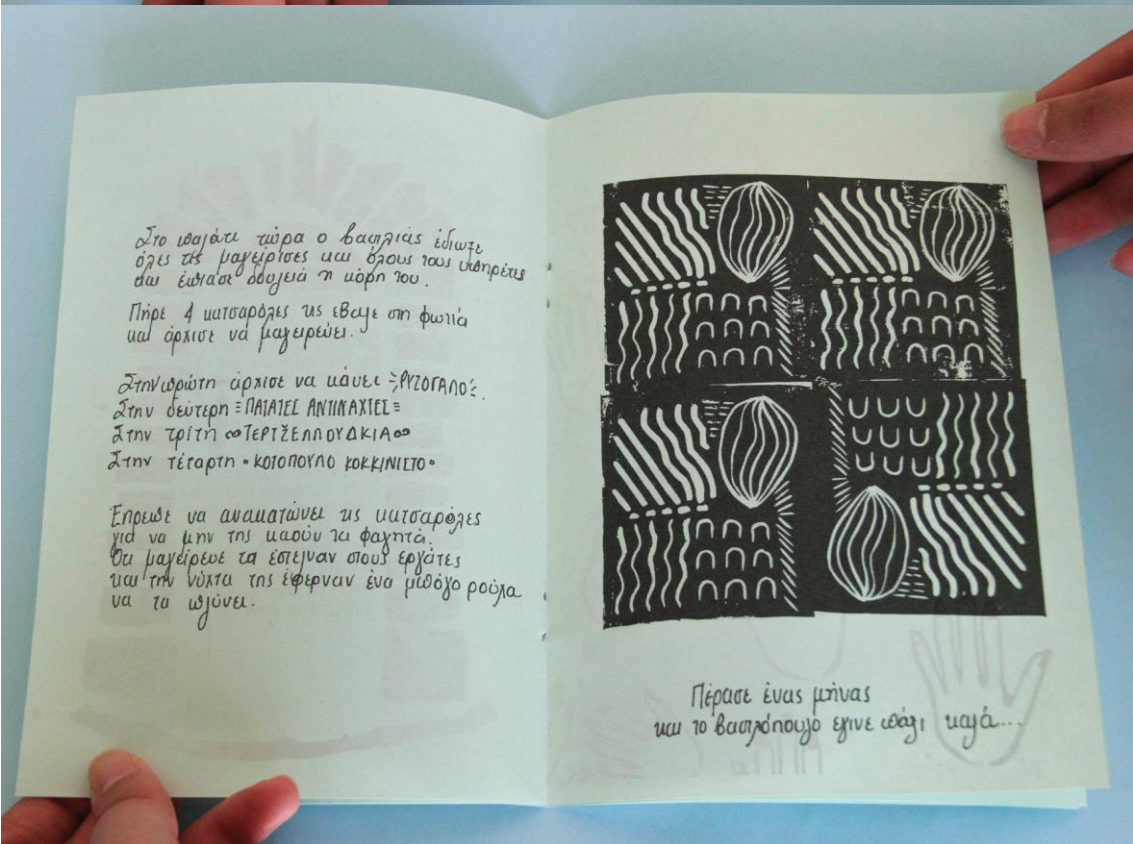 Στο παλάτι τώρα ο βασιλιάς έδιωξε
όλες τις μαγείρισες και όλους τους υπηρέτες
και έπιασε δουλειά η κόρη του.
Πήρε 4 κατσαρόλες τις έβαλε στη φωτιά
και άρχισε να μαγειρεύει.
Στην πρώτη άρχισε να κάνει ΡΥΖΟΓΑΛΟ
Στην δεύτερη =ΠΑΤΑΤΕΣ ΑΝΤΙΝΑΧΤΕΣ=
Στην τρίτη ∞ΤΕΡΤΖΕΛΛΟΥΔΚΙΑ∞
Στην τέταρτη • ΚΟΤΟΠΟΥΛΟ ΚΟΚΚΙΝΙΣΤΟ •
Έπρεπε να ανακατώνει τις κατσαρόλες
για να μην της καούν τα φαγητά.
Ότι μαγείρευε τα έστειναν στους εργάτες
και την νύχτα της έφερναν ένα μπόγο ρούχα
να τα πλύνει.
Πέρασε ένας μήνας
και το βασιλόπουλο έγινε πάλι καλά...